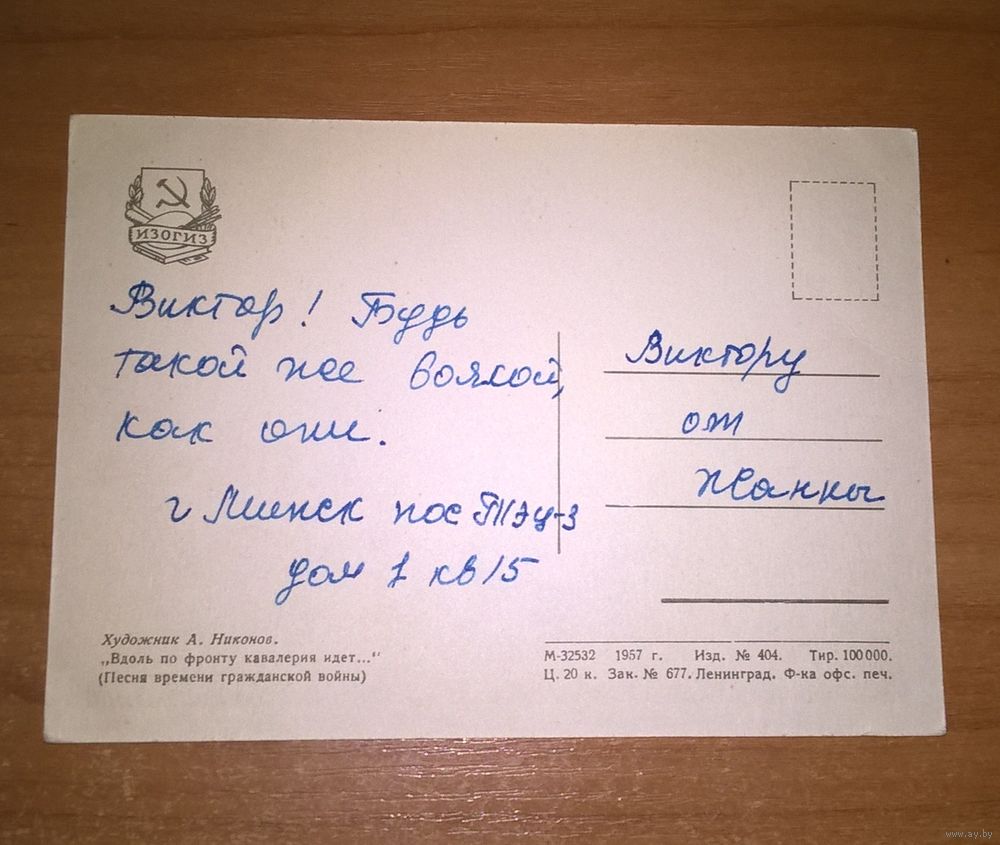 ИЗОГИЗ
Виктор! Будь
такой же воякой,
как они.
г Минск пос ТЭЦ-3
дом 1 кв 15
Виктору
от
Жанны
Художник А. Никонов.
„Вдоль по фронту кавалерия идет..."
(Песня времени гражданской войны)
М-32532 1957 г. Изд. № 404. Тир. 100000.
Ц. 20 к. Зак. № 677. Ленинград. Ф-ка офс. печ.
www.ay.by